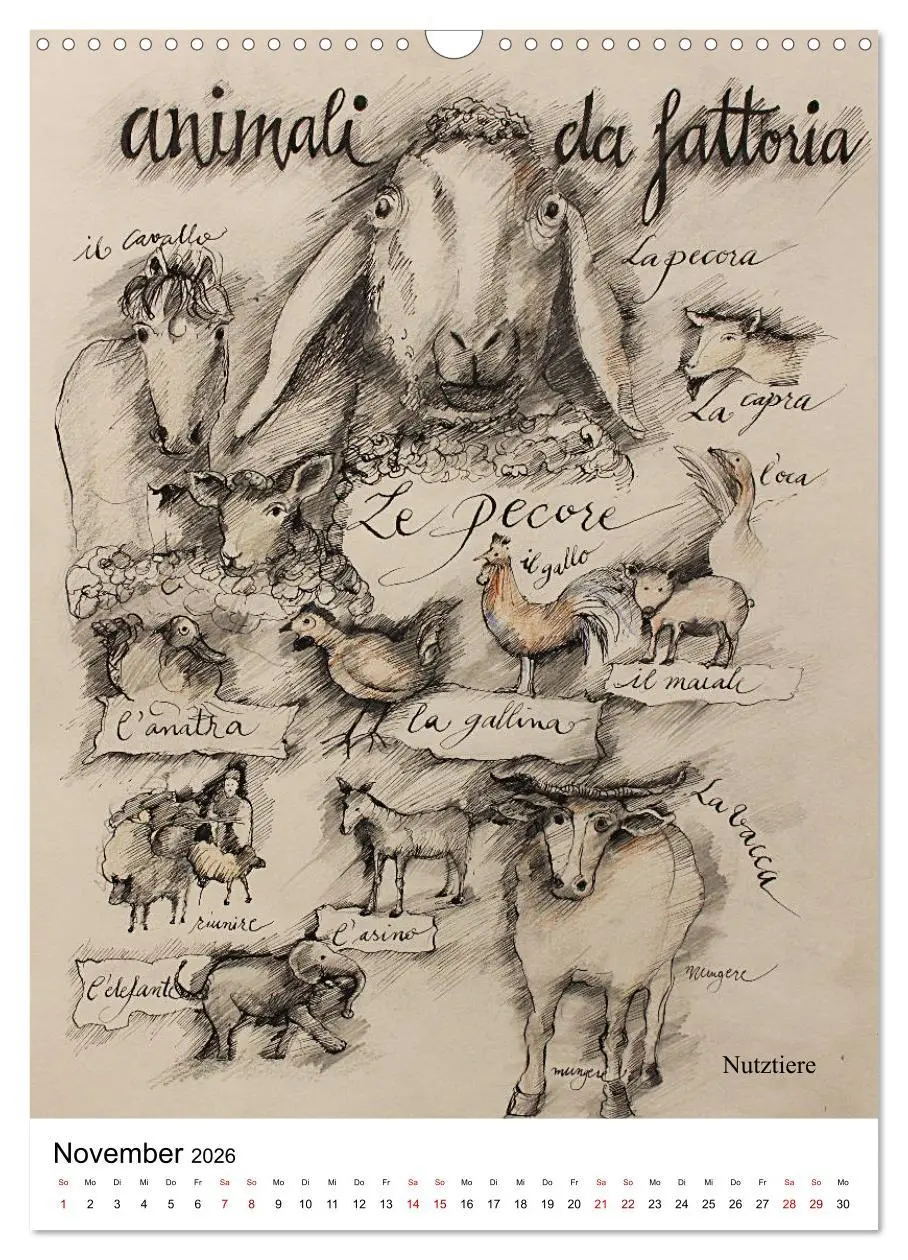 animali da fattoria
il cavallo
La pecora
La capra
l'oca
Le pecore
il gallo
il maiale
l'anatra
la gallina
La vacca
riunire
l'asino
l'elefante
mungere
mungere
Nutztiere
November 2026
So Mo Di Mi Do Fr Sa So Mo Di Mi Do Fr Sa So Mo Di Mi Do Fr Sa So Mo Di Mi Do Fr Sa So Mo
1 2 3 4 5 6 7 8 9 10 11 12 13 14 15 16 17 18 19 20 21 22 23 24 25 26 27 28 29 30